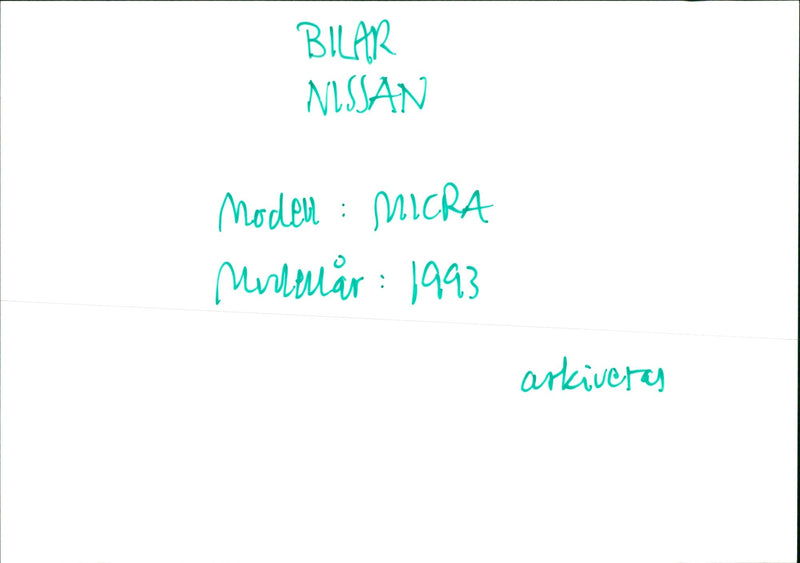 BILAR
NISSAN
Modell : MICRA
Modellår : 1993
arkiveras